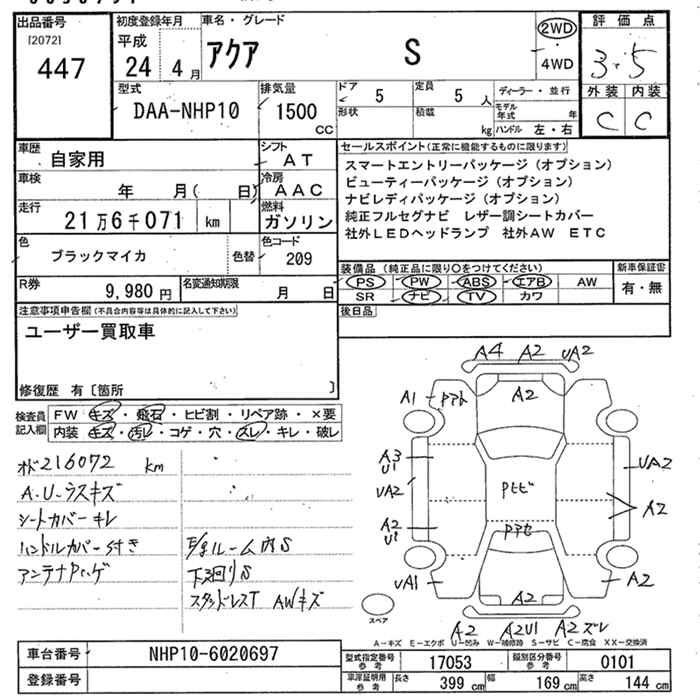 出品番号
[2072]
447
初度登録年月
平成
24 4 月
車名・グレード
アクア S
2WD
4WD
評価点
3.5
外装 内装
C C
型式
DAA-NHP10
排気量
1500
CC
ドア
5
定員
5 人
形状
積載
kg
ディーラー・並行
モデル年式 年
ハンドル 左・右
車歴
自家用
シフト
AT
車検
年 月( 日)
冷房
AAC
走行
21万6千071 km
燃料
ガソリン
色
ブラックマイカ
色替
色コード
209
R券
9,980 円
名変通知期限
月 日
セールスポイント(正常に機能するものに限ります)
スマートエントリーパッケージ(オプション)
ビューティーパッケージ(オプション)
ナビレディパッケージ(オプション)
純正フルセグナビ レザー調シートカバー
社外LEDヘッドランプ 社外AW ETC
装備品(純正品に限り○をつけてください)
新車保証書
PS PW ABS エアB AW
SR ナビ TV カワ
有・無
後日品
注意事項申告欄(不具合内容等は具体的に記入して下さい)
ユーザー買取車
修復歴 有〔箇所 〕
検査員記入欄
FW キズ・飛石・ヒビ割・リペア跡・×要
内装 キズ・汚レ・コゲ・穴・スレ・キレ・破レ
216072 km
A.U-ラスキズ
シートカバーキレ
ハンドルカバー付き
アンテナ
ルーム内S
下廻りS
スタッドレスT AWキズ
A4 A2 UA2
A1
A2
A3
U1
UA2
UA2
A2
U1
A2
UA1
A2
A2
A2 A2U1 A2ズレ
スペア
A-キズ E-エクボ U-凹み W-補修跡 S-サビ C-腐食 XX-交換済
車台番号
NHP10-6020697
登録番号
型式指定番号参考
17053
類別区分番号参考
0101
車庫証明用参考
長さ 399 cm
幅 169 cm
高さ 144 cm